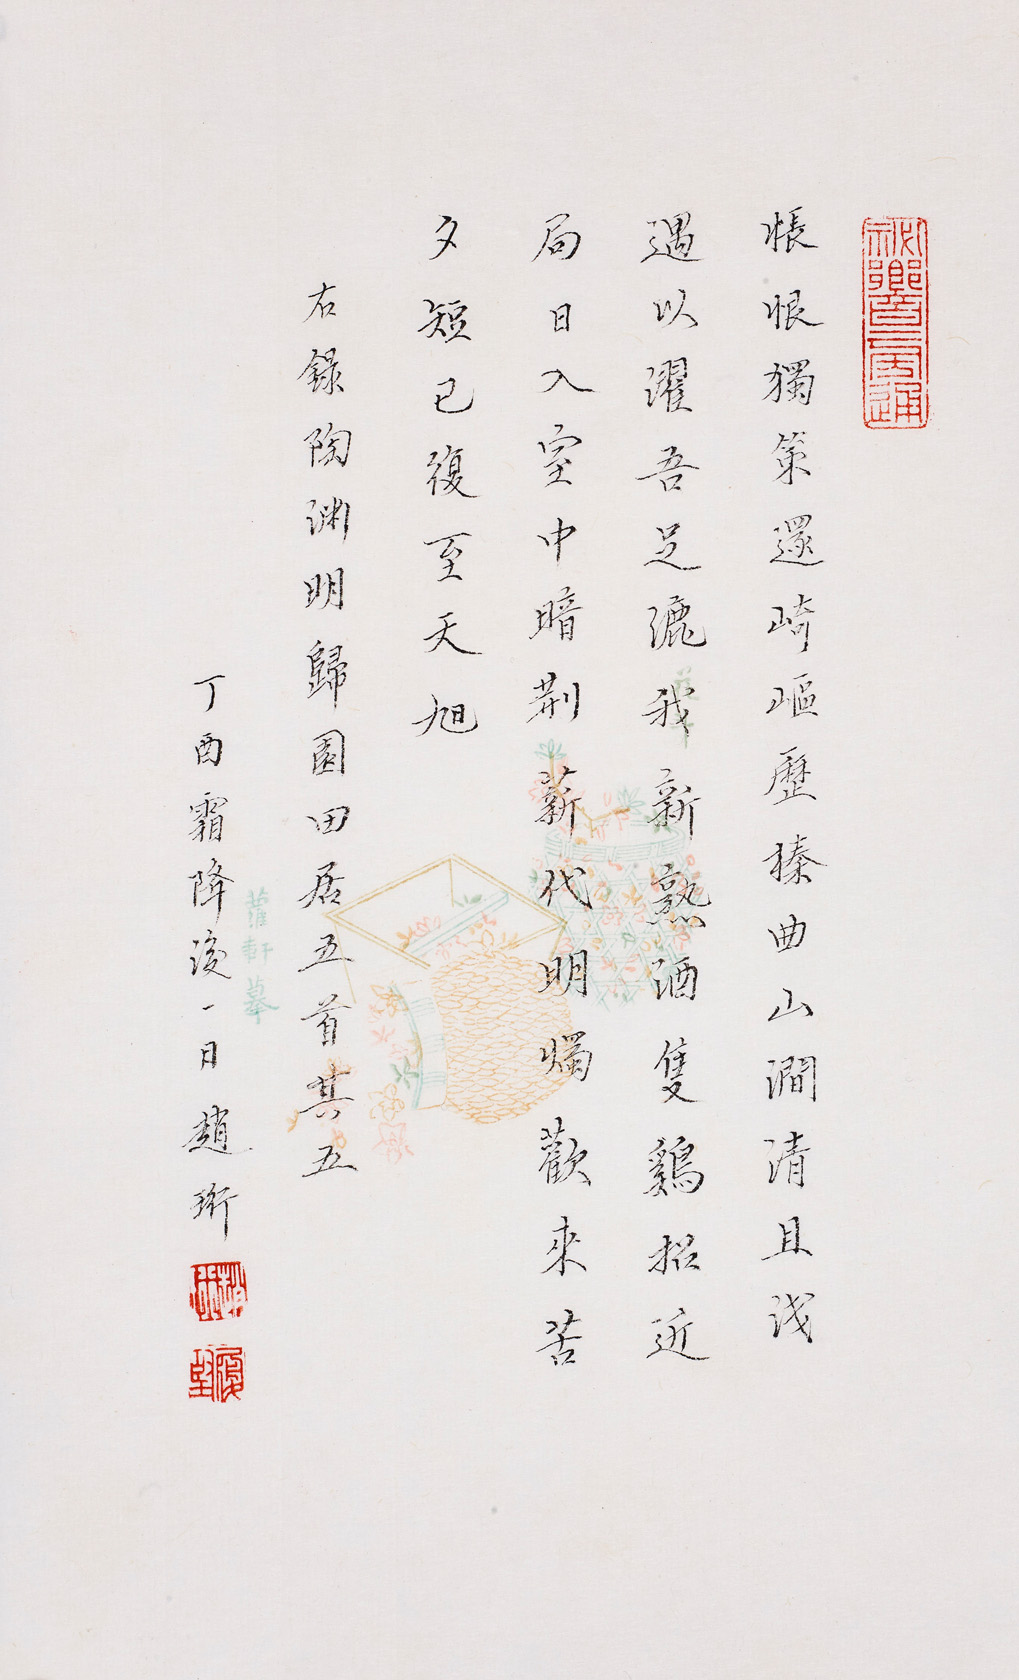 祕響旁通
悵恨獨策還崎嶇歷榛曲山澗清且浅
遇以濯吾足漉我新熟酒隻鷄招近
局日入室中暗荆薪代明燭歡來苦
夕短已復至天旭
右錄陶渊明歸園田居五首其五
蘿軒摹
丁酉霜降後一日趙珩